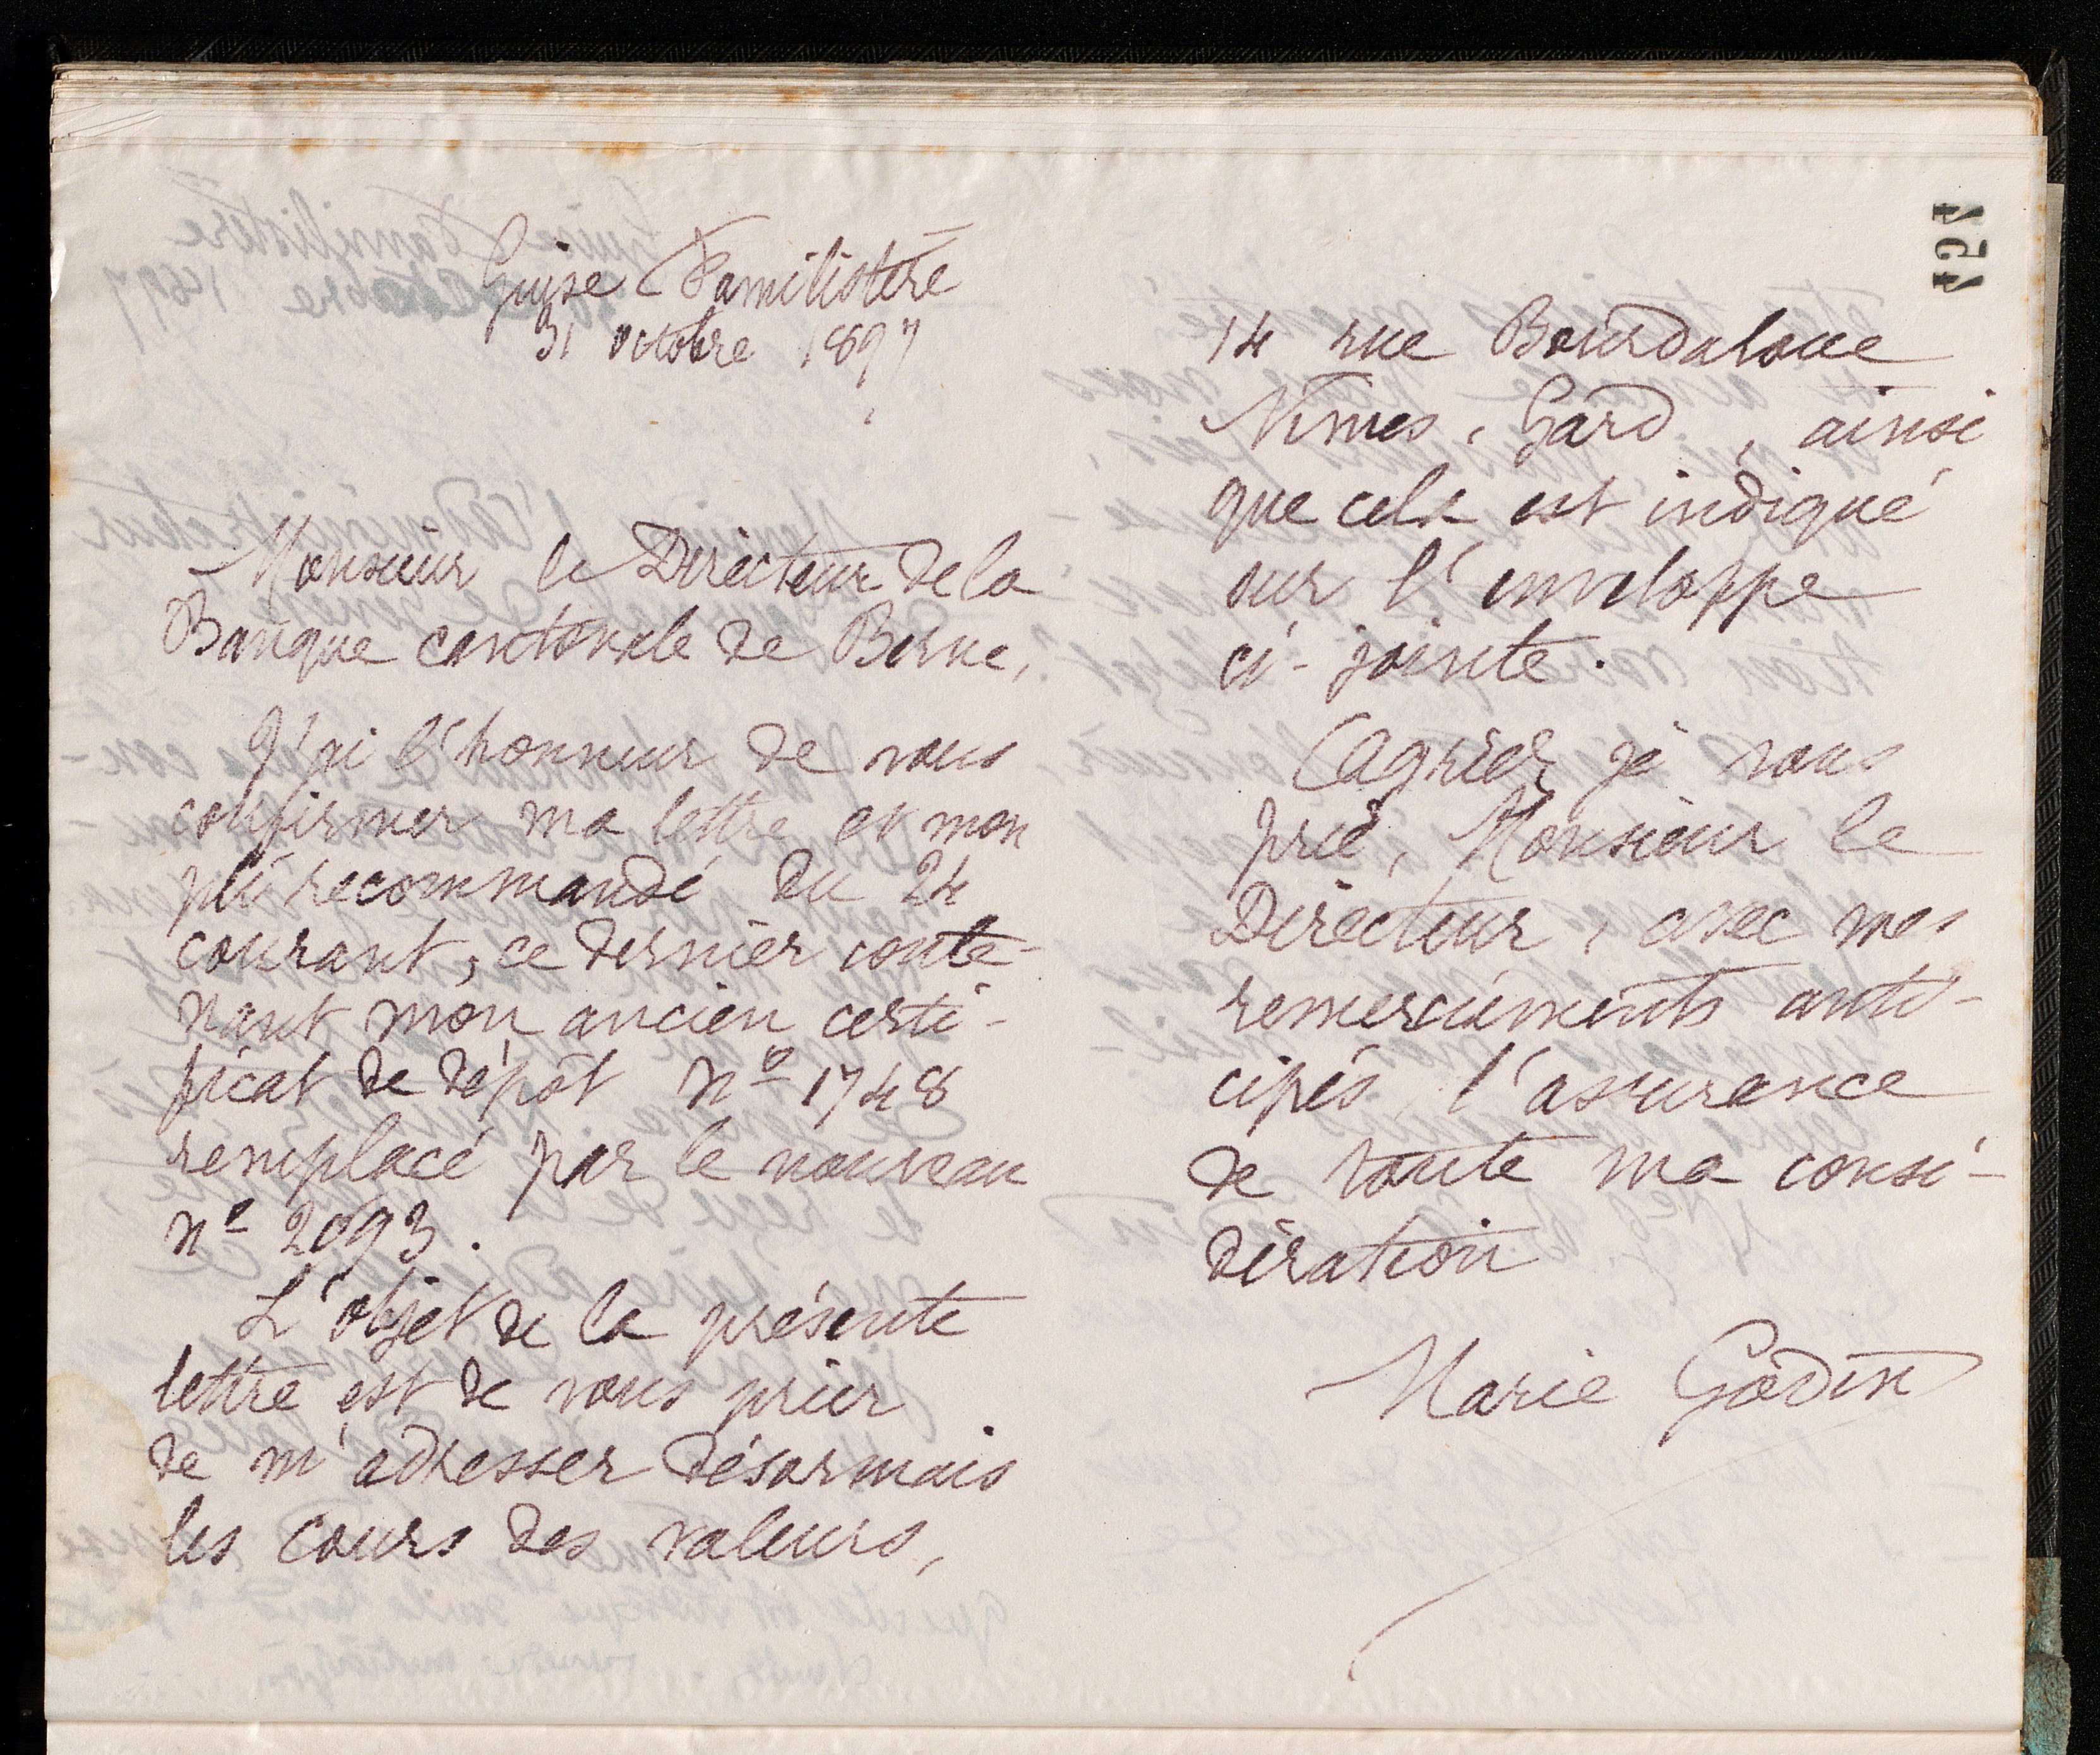 Guise Familistère
31 octobre 1897
Monsieur le Directeur de la
Banque cantonale de Berne,
J'ai l'honneur de vous
confirmer ma lettre et mon
pli recommandé du 24
courant, ce dernier conte-
nant mon ancien certi-
ficat de dépôt nº 1748
remplacé par le nouveau
nº 2093.
L'objet de la présente
lettre est de vous prier
de m'adresser désormais
les cours des valeurs,
14 rue Bourdaloue
Nîmes, Gard, ainsi
que cela est indiqué
sur l'enveloppe
ci-jointe.
Agréez je vous
prie, Monsieur le
Directeur, avec mes
remerciements anti-
cipés, l'assurance
de toute ma consi-
dération
Marie Godin